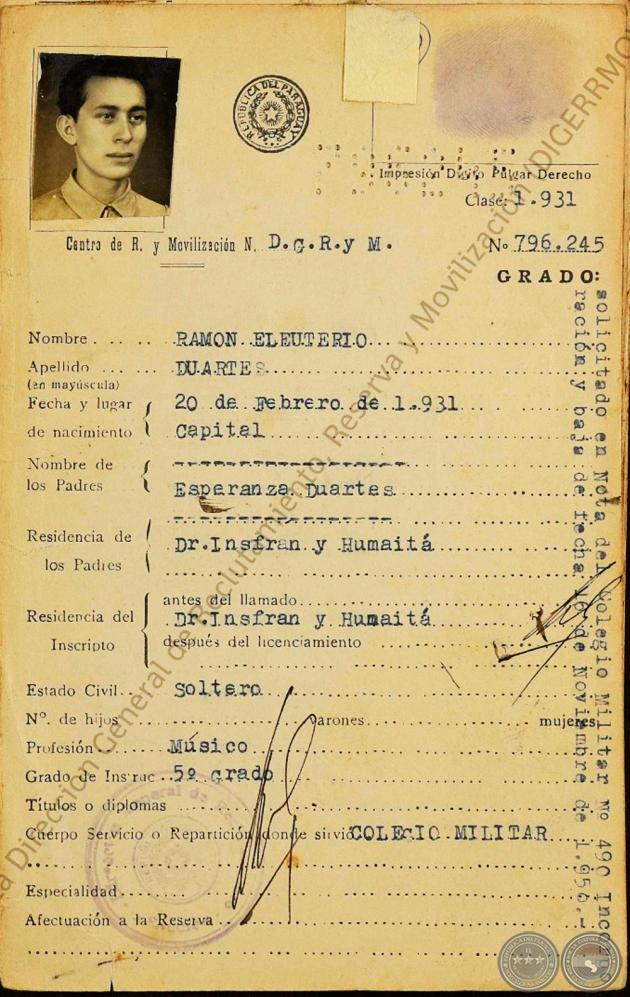 REPUBLICA DEL PARAGUAY
Impresión Dígito Pulgar Derecho
Clase: 1.931
Centro de R. y Movilización N. D.G.R.y M.
Nº 796.245
GRADO:
Nombre RAMON ELEUTERIO
Apellido DUARTES
(en mayúscula)
Fecha y lugar 20 de Febrero de 1.931
de nacimiento Capital
Nombre de ----------------------
los Padres Esperanza Duartes
--------------------
Residencia de Dr.Insfran y Humaitá
los Padres
antes del llamado
Residencia del Dr.Insfran y Humaitá
Inscripto después del licenciamiento
Estado Civil Soltero
Nº. de hijos varones mujeres
Profesión Músico
Grado de Instruc 5º grado
Títulos o diplomas
Cuerpo Servicio o Repartición donde sirvió COLEGIO MILITAR
Especialidad
Afectuación a la Reserva
solicitado en Nota del Colegio Militar Nº 490 Incorpo
ración y baja de fecha de Noviembre de 1.950.-
Dirección General de Reclutamiento, Reserva y Movilización (DIGERRMOV